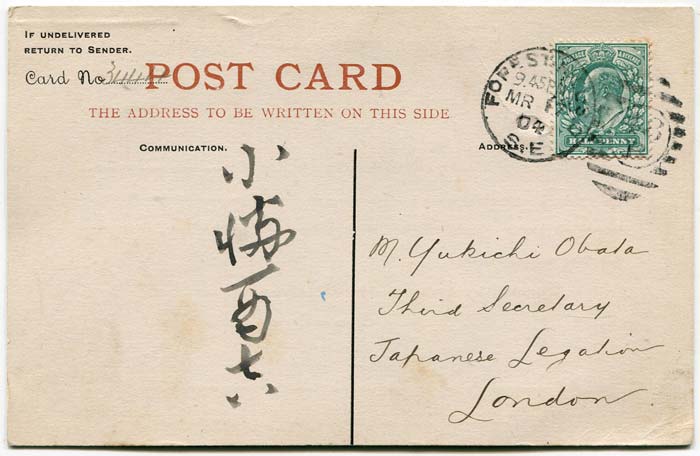 IF UNDELIVERED
RETURN TO SENDER.
Card No
POST CARD
THE ADDRESS TO BE WRITTEN ON THIS SIDE
COMMUNICATION.
小幡酉吉
ADDRESS.
FOREST
9.45
MR
04
S.E
HALFPENNY
M. Yukichi Obata
Third Secretary
Japanese Legation
London.